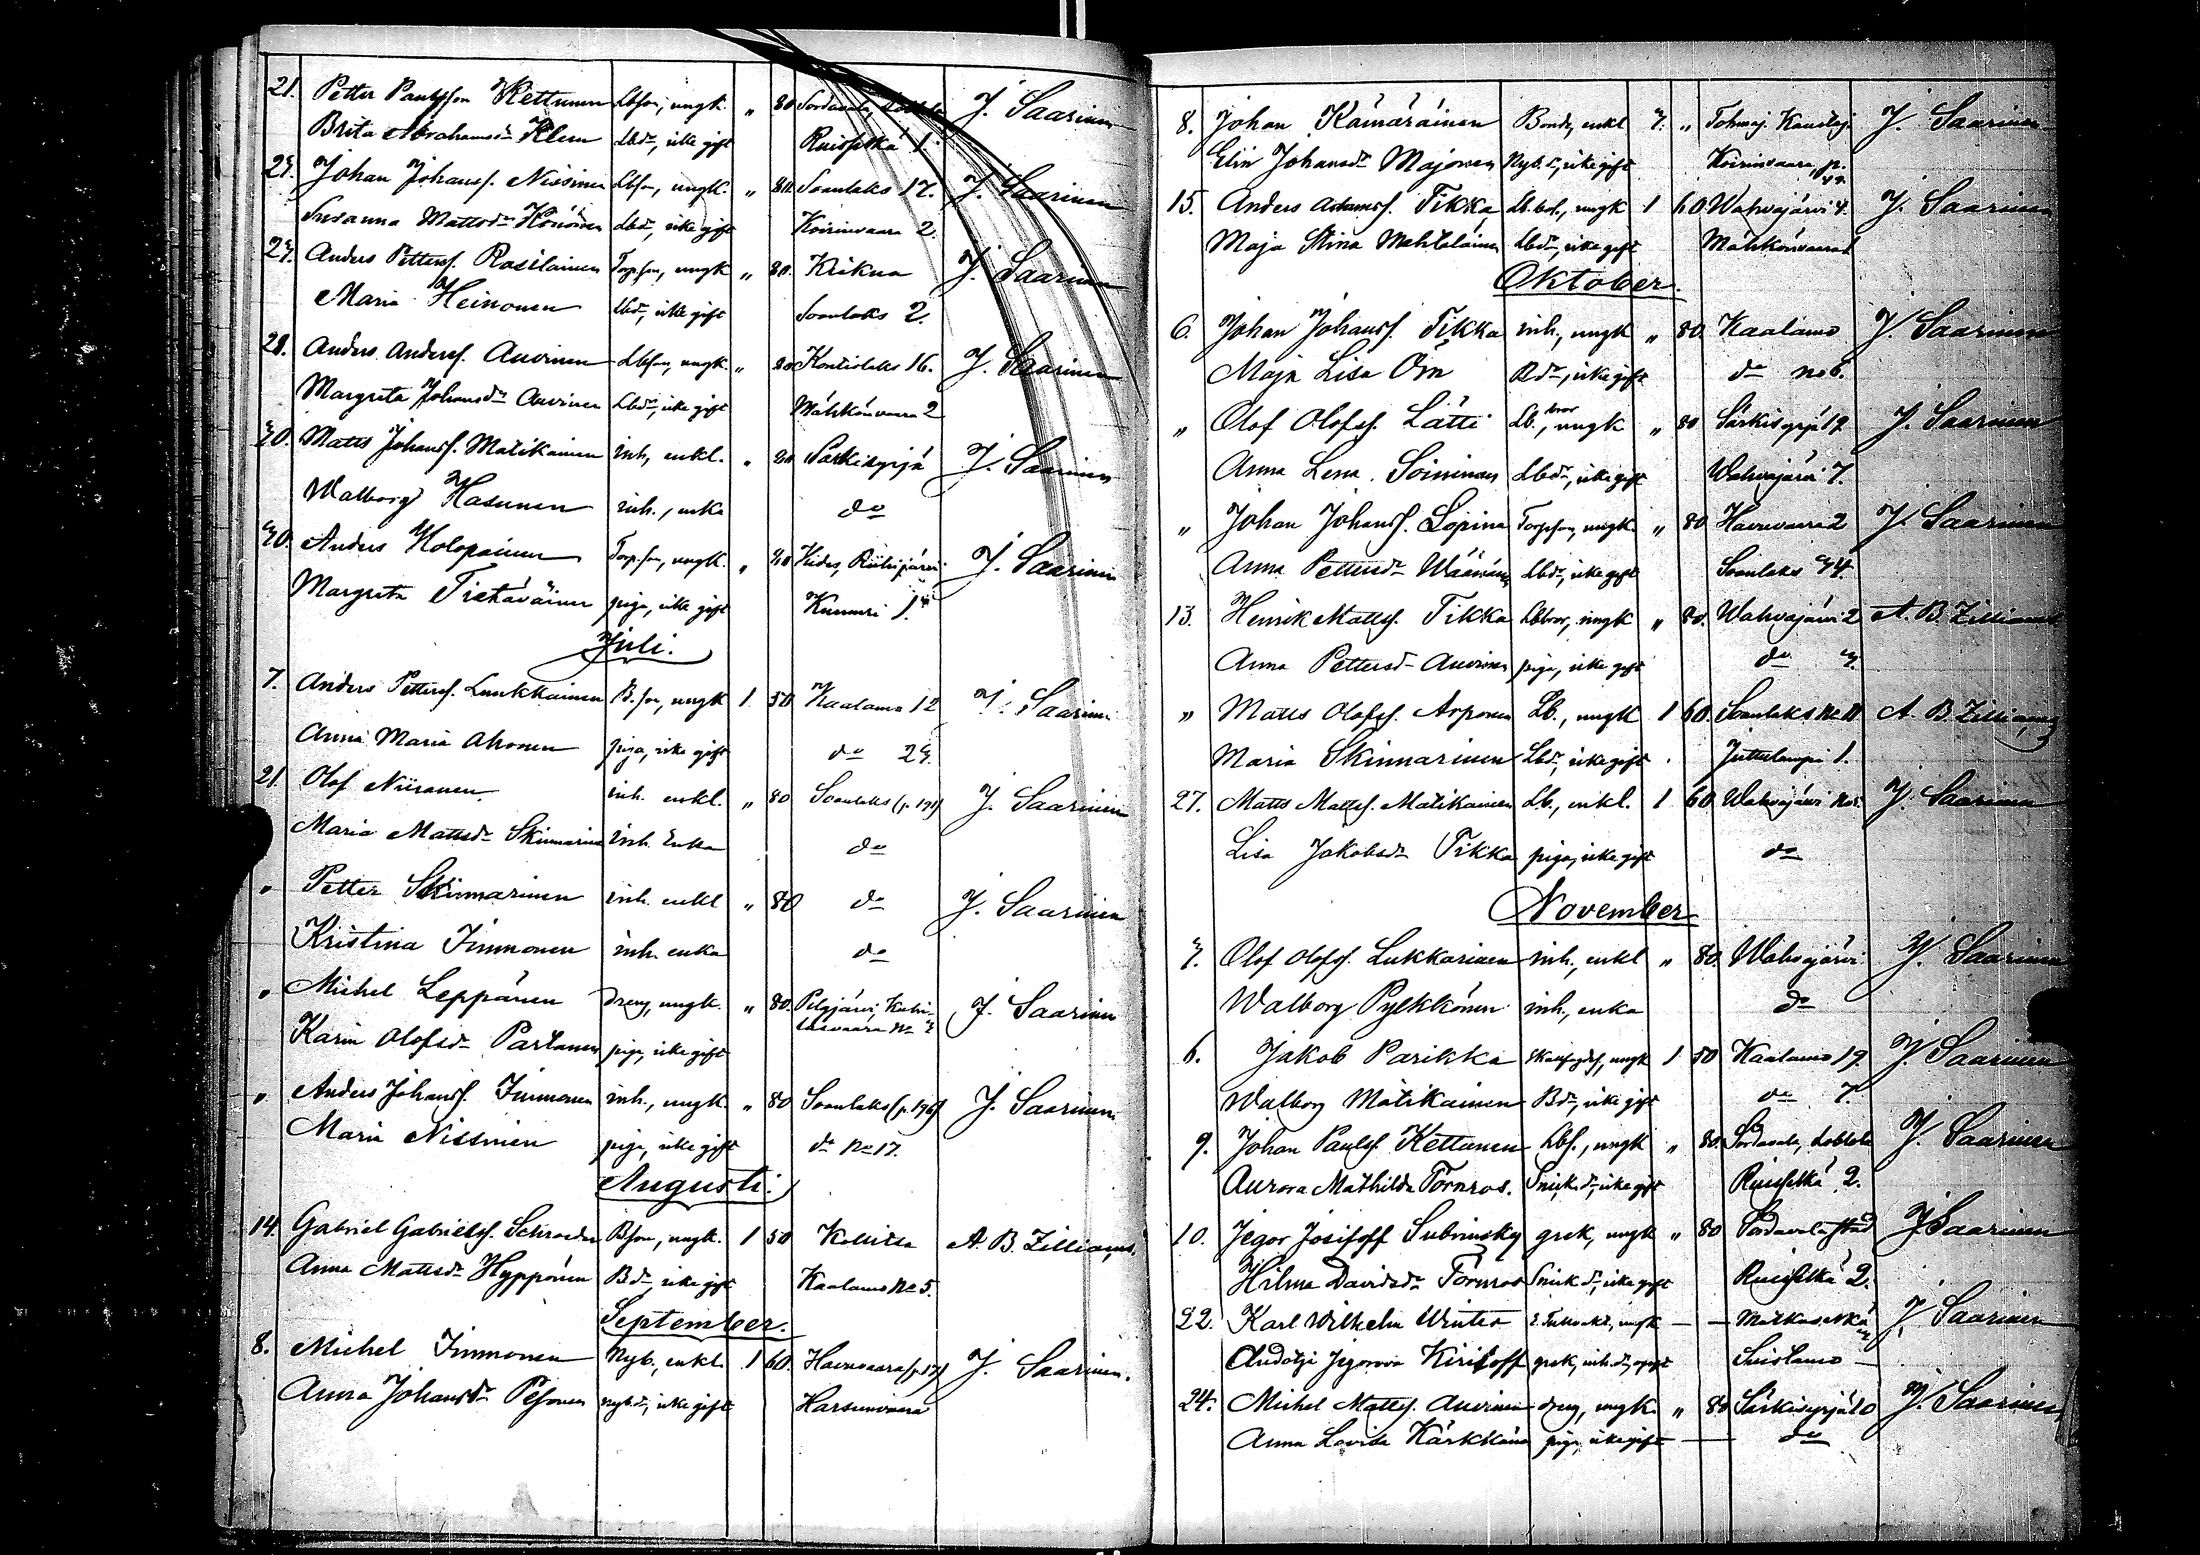 21. Petter Paulsson Kettunen Lbson, ungk. " 80 Sordavala,
Brita Abrahamsdr Klem Lbdr, icke gift Ruisselkä 1. J. Saarinen
23. Johan Johanss. Nissinen Lbson, ungk. " 80. Soanlaks 17. J. Saarinen
Susanna Mattsdr Könönen Lbdr, icke gift Koirinvaara 2.
23. Anders Petterss. Rosilainen Torp.son, ungk " 80. Krikna J. Saarinen
Maria Heinonen Lbdr, icke gift Soanlaks 2.
28. Anders Anderss. Auvinen Lbson, ungk. " 80 Kontiolaks 16. J. Saarinen
Margreta Johansdr Auvinen Lbdr, icke gift Mähkönvaara 2
30. Matts Johanss. Matikainen inh, enkl. " 80 Särkisyrjä J. Saarinen
Walborg Hasunen inh., enka do
30. Anders Holopainen Torp.son, ungk. " 80 Kides, J. Saarinen
Margreta Tietäväinen piga, icke gift Kumuri 1.
Juli.
7. Anders Petterss. Luukkainen B.son, ungk 1 50 Kaalamo 12 J. Saarinen
Anna Maria Ahonen piga, icke gift do 23.
21. Olof Niiranen inh. enkl. " 80 Soanlaks (p. 191) J. Saarinen
Maria Mattsdr Skinnarinen inh. Enka do
" Petter Skinnarinen inh. enkl " 80 do J. Saarinen
Kristina Immonen inh. enka do
" Michel Leppänen dreng, ungk. " 80. Pelgjärvi, J. Saarinen
Karin Olofsdr Partanen piga, icke gift
" Anders Johanss. Immonen inh., ungk. " 80 Soanlaks (p. 196) J. Saarinen
Maria Nissinen piga, icke gift do No 17.
Augusti.
14. Gabriel Gabrielss. Schroeder Bson, ungk. 1 50 Kollitsa A. B. Zilliacus.
Anna Mattsdr Hyppönen Bdr icke gift Kaalamo No 5.
September.
8. Michel Immonen Nyb., enkl. 1 60. Havuvaara J. Saarinen.
Anna Johansdr Pesonen nyb.dr, icke gift Harsunvaara
8. Johan Kämäräinen Bonde, enkl 3. " Tohmaj. J. Saarinen
Elin Johansdr Majonen Nyb.dr, icke gift Koirinvaara,
15. Anders Adamss. Tikka Lb. ungk 1 60 Wahvajärvi 4. J. Saarinen
Maja Stina Mehtäläinen Lbdr, icke gift Mähkönvaara 1
Oktober.
6. Johan Johanss. Tikka inh., ungk " 80. Kaalamo J. Saarinen
Maja Lisa Örn Bdr, icke gift do No 6.
" Olof Olofss. Lätti Lb.bror, ungk " 80 Särkisyrjä J. Saarinen
Anna Lena Soininen Lbdr, icke gift Wahvajärvi 7.
" Johan Johanss. Lopina Torpson, ungk " 80. Havuvaara 2 J. Saarinen
Anna Pettersdr Wäänänen Lbdr, icke gift Soanlaks 34.
13. Henrik Mattss. Tikka Lbbror, ungk " 80. Wahvajärvi 2 A. B. Zilliacus
Anna Pettersdr Auvinen piga, icke gift do 3.
" Matts Olofss. Asponen Lb., ungk 1 60. Soanlaks A. B. Zilliacus
Maria Skinnarinen Lbdr, icke gift Juttulampi 1.
27. Matts Mattss. Matikainen Lb., enkl. 1 60 Wahvajärvi J. Saarinen
Lisa Jakobsdr Tikka piga, icke gift do
November
3. Olof Olofss. Lukkarinen inh., enkl " 80. Wahvajärvi J. Saarinen
Walborg Pylkkönen inh., enka do
6. Jakob Parikka ungk 1 50 Kaalamo 19. J. Saarinen
Walborg Matikainen Bdr, icke gift do 7.
9. Johan Paulss. Kettunen Lbs., ungk " 80. Sordavala, J. Saarinen
Aurora Mathilda Törnros. Snick.dr, icke gift Ruisselkä 2.
10. Jegor Josifoff Subrinsky grek, ungk " 80 Sordavala stad J. Saarinen
Hilma Davidsdr Törnros Snick dr, icke gift Ruisselkä 2.
22. Karl Wilhelm Winter ungk — — Matkaselkä J. Saarinen
Audotja Jegorova Kiriloff grek, inh.dr, ogift Suistamo —
24. Michel Mattss. Auvinen dreng, ungk. " 80 Särkisyrjä 10 J. Saarinen
Anna Lovisa Kärkkäinen piga, icke gift — do